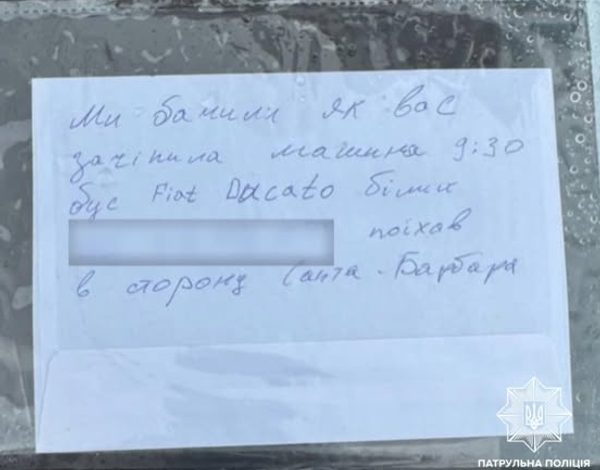 Ми бачили як вас
зачіпила машина 9:30
бус Fiat Ducato білий
поїхав
в сторону Санта-Барбара
ПАТРУЛЬНА ПОЛІЦІЯ